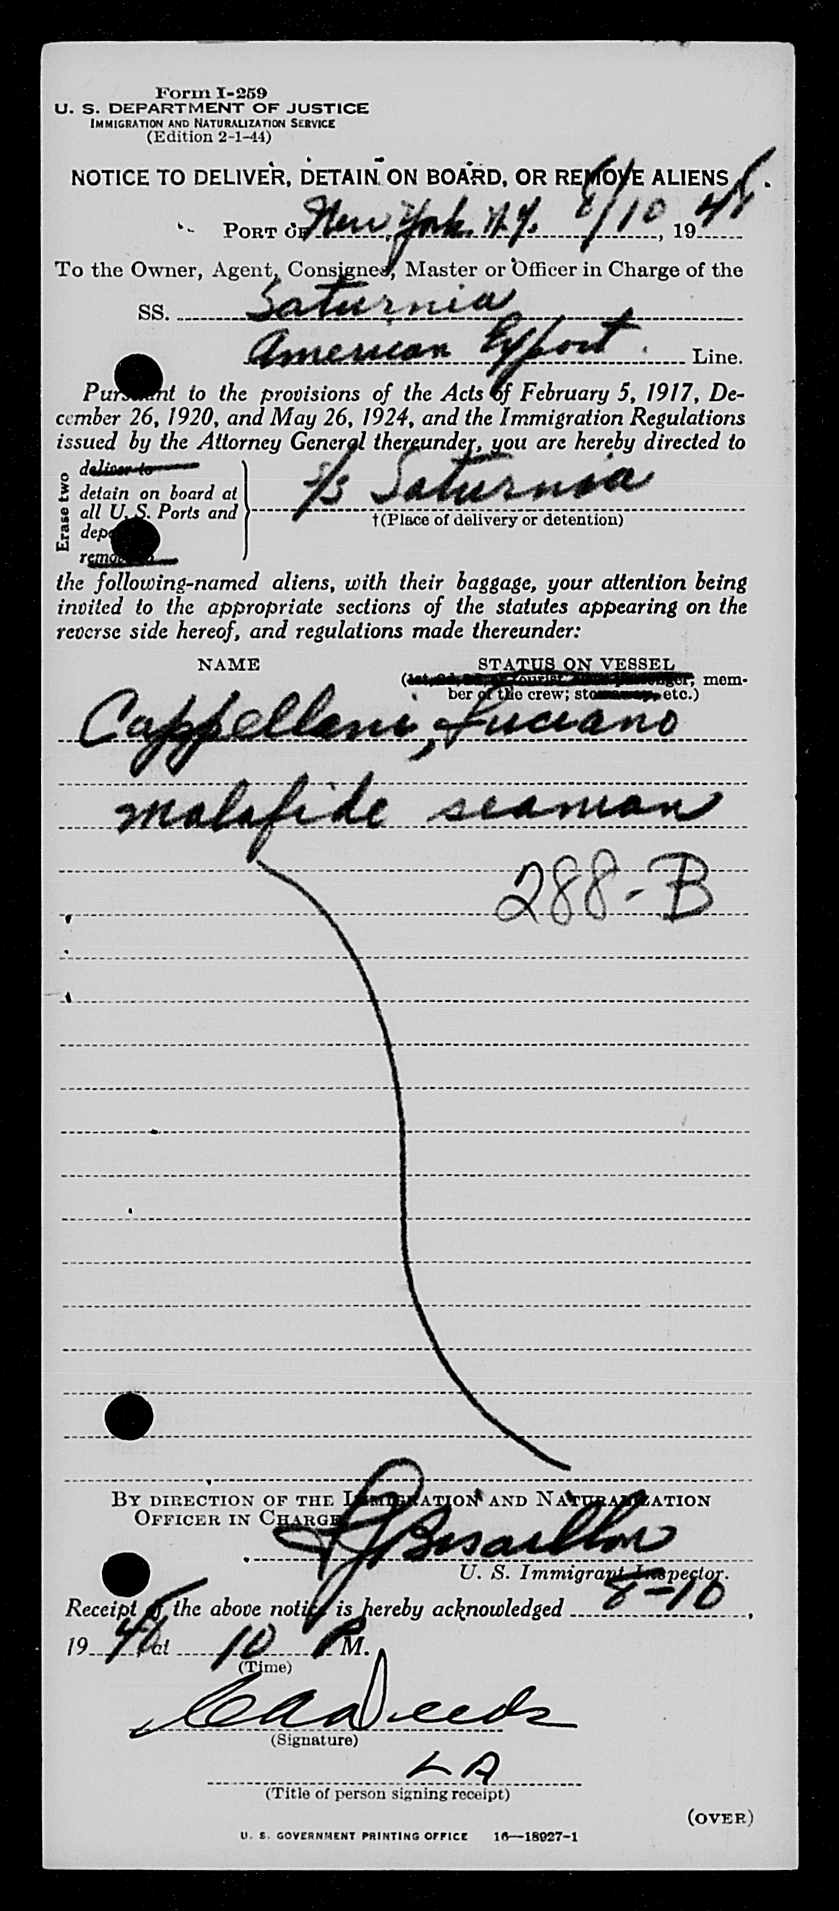 Form I-259
U. S. DEPARTMENT OF JUSTICE
IMMIGRATION AND NATURALIZATION SERVICE
(Edition 2-1-44)
NOTICE TO DELIVER, DETAIN ON BOARD, OR REMOVE ALIENS
PORT OF New York N.Y. 8/10, 1946
To the Owner, Agent, Consignee, Master or Officer in Charge of the
SS. Saturnia
American Export Line.
Pursuant to the provisions of the Acts of February 5, 1917, De-
cember 26, 1920, and May 26, 1924, and the Immigration Regulations
issued by the Attorney General thereunder, you are hereby directed to
Erase two
deliver to
detain on board at
all U. S. Ports and
s/s Saturnia
†(Place of delivery or detention)
the following-named aliens, with their baggage, your attention being
invited to the appropriate sections of the statutes appearing on the
reverse side hereof, and regulations made thereunder:
NAME STATUS ON VESSEL
mem-
ber of the crew; etc.)
Cappellani, Luciano
malafide seaman
288-B
BY DIRECTION OF THE IMMIGRATION AND NATURALIZATION
OFFICER IN CHARGE
U. S. Immigrant Inspector.
Receipt of the above notice is hereby acknowledged 8-10,
1946 at 10 P M.
(Time)
(Signature)
(Title of person signing receipt)
(OVER)
U. S. GOVERNMENT PRINTING OFFICE 16—18927-1